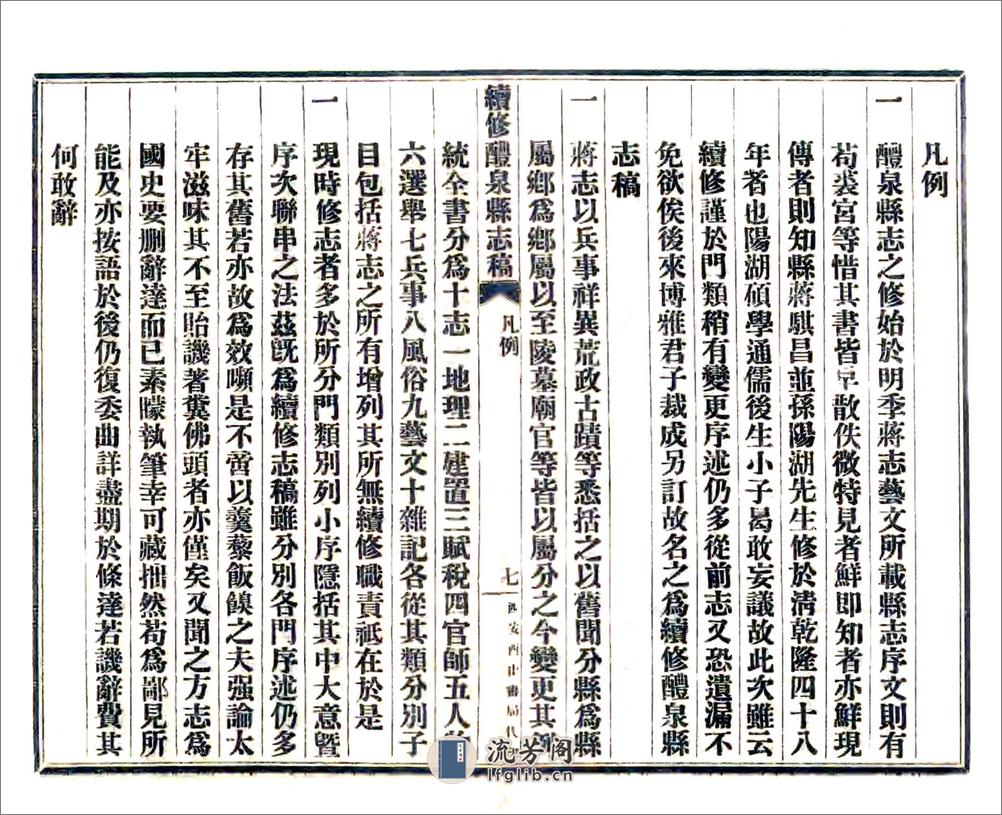 凡例
一 醴泉縣志之修始於明季蔣志藝文所載縣志序文則有
苟裘宮等惜其書皆早散佚微特見者鮮即知者亦鮮現
傳者則知縣蔣騏昌並孫陽湖先生修於淸乾隆四十八
年者也陽湖碩學通儒後生小子曷敢妄議故此次雖云
續修謹於門類稍有變更序述仍多從前志又恐遺漏不
免欲俟後來博雅君子裁成另訂故名之爲續修醴泉縣
志稿
一 蔣志以兵事祥異荒政古蹟等悉括之以舊聞分縣爲縣
屬鄉爲鄉屬以至陵墓廟官等皆以屬分之今變更其例
續修醴泉縣志稿 凡例 七 西安西山書局代
統全書分爲十志一地理二建置三賦稅四官師五人物
六選舉七兵事八風俗九藝文十雜記各從其類分別子
目包括蔣志之所有增列其所無續修職責祇在於是
一 現時修志者多於所分門類別列小序隱括其中大意曁
序次聯串之法茲旣爲續修志稿雖分別各門序述仍多
存其舊若亦故爲效嚬是不啻以羹藜飯餱之夫强論太
牢滋味其不至貽譏著糞佛頭者亦僅矣又聞之方志爲
國史要删辭達而已素矇執筆幸可藏拙然苟爲鄙見所
能及亦按語於後仍復委曲詳盡期於條達若譏辭費其
何敢辭
流芳阁
lfglib.cn